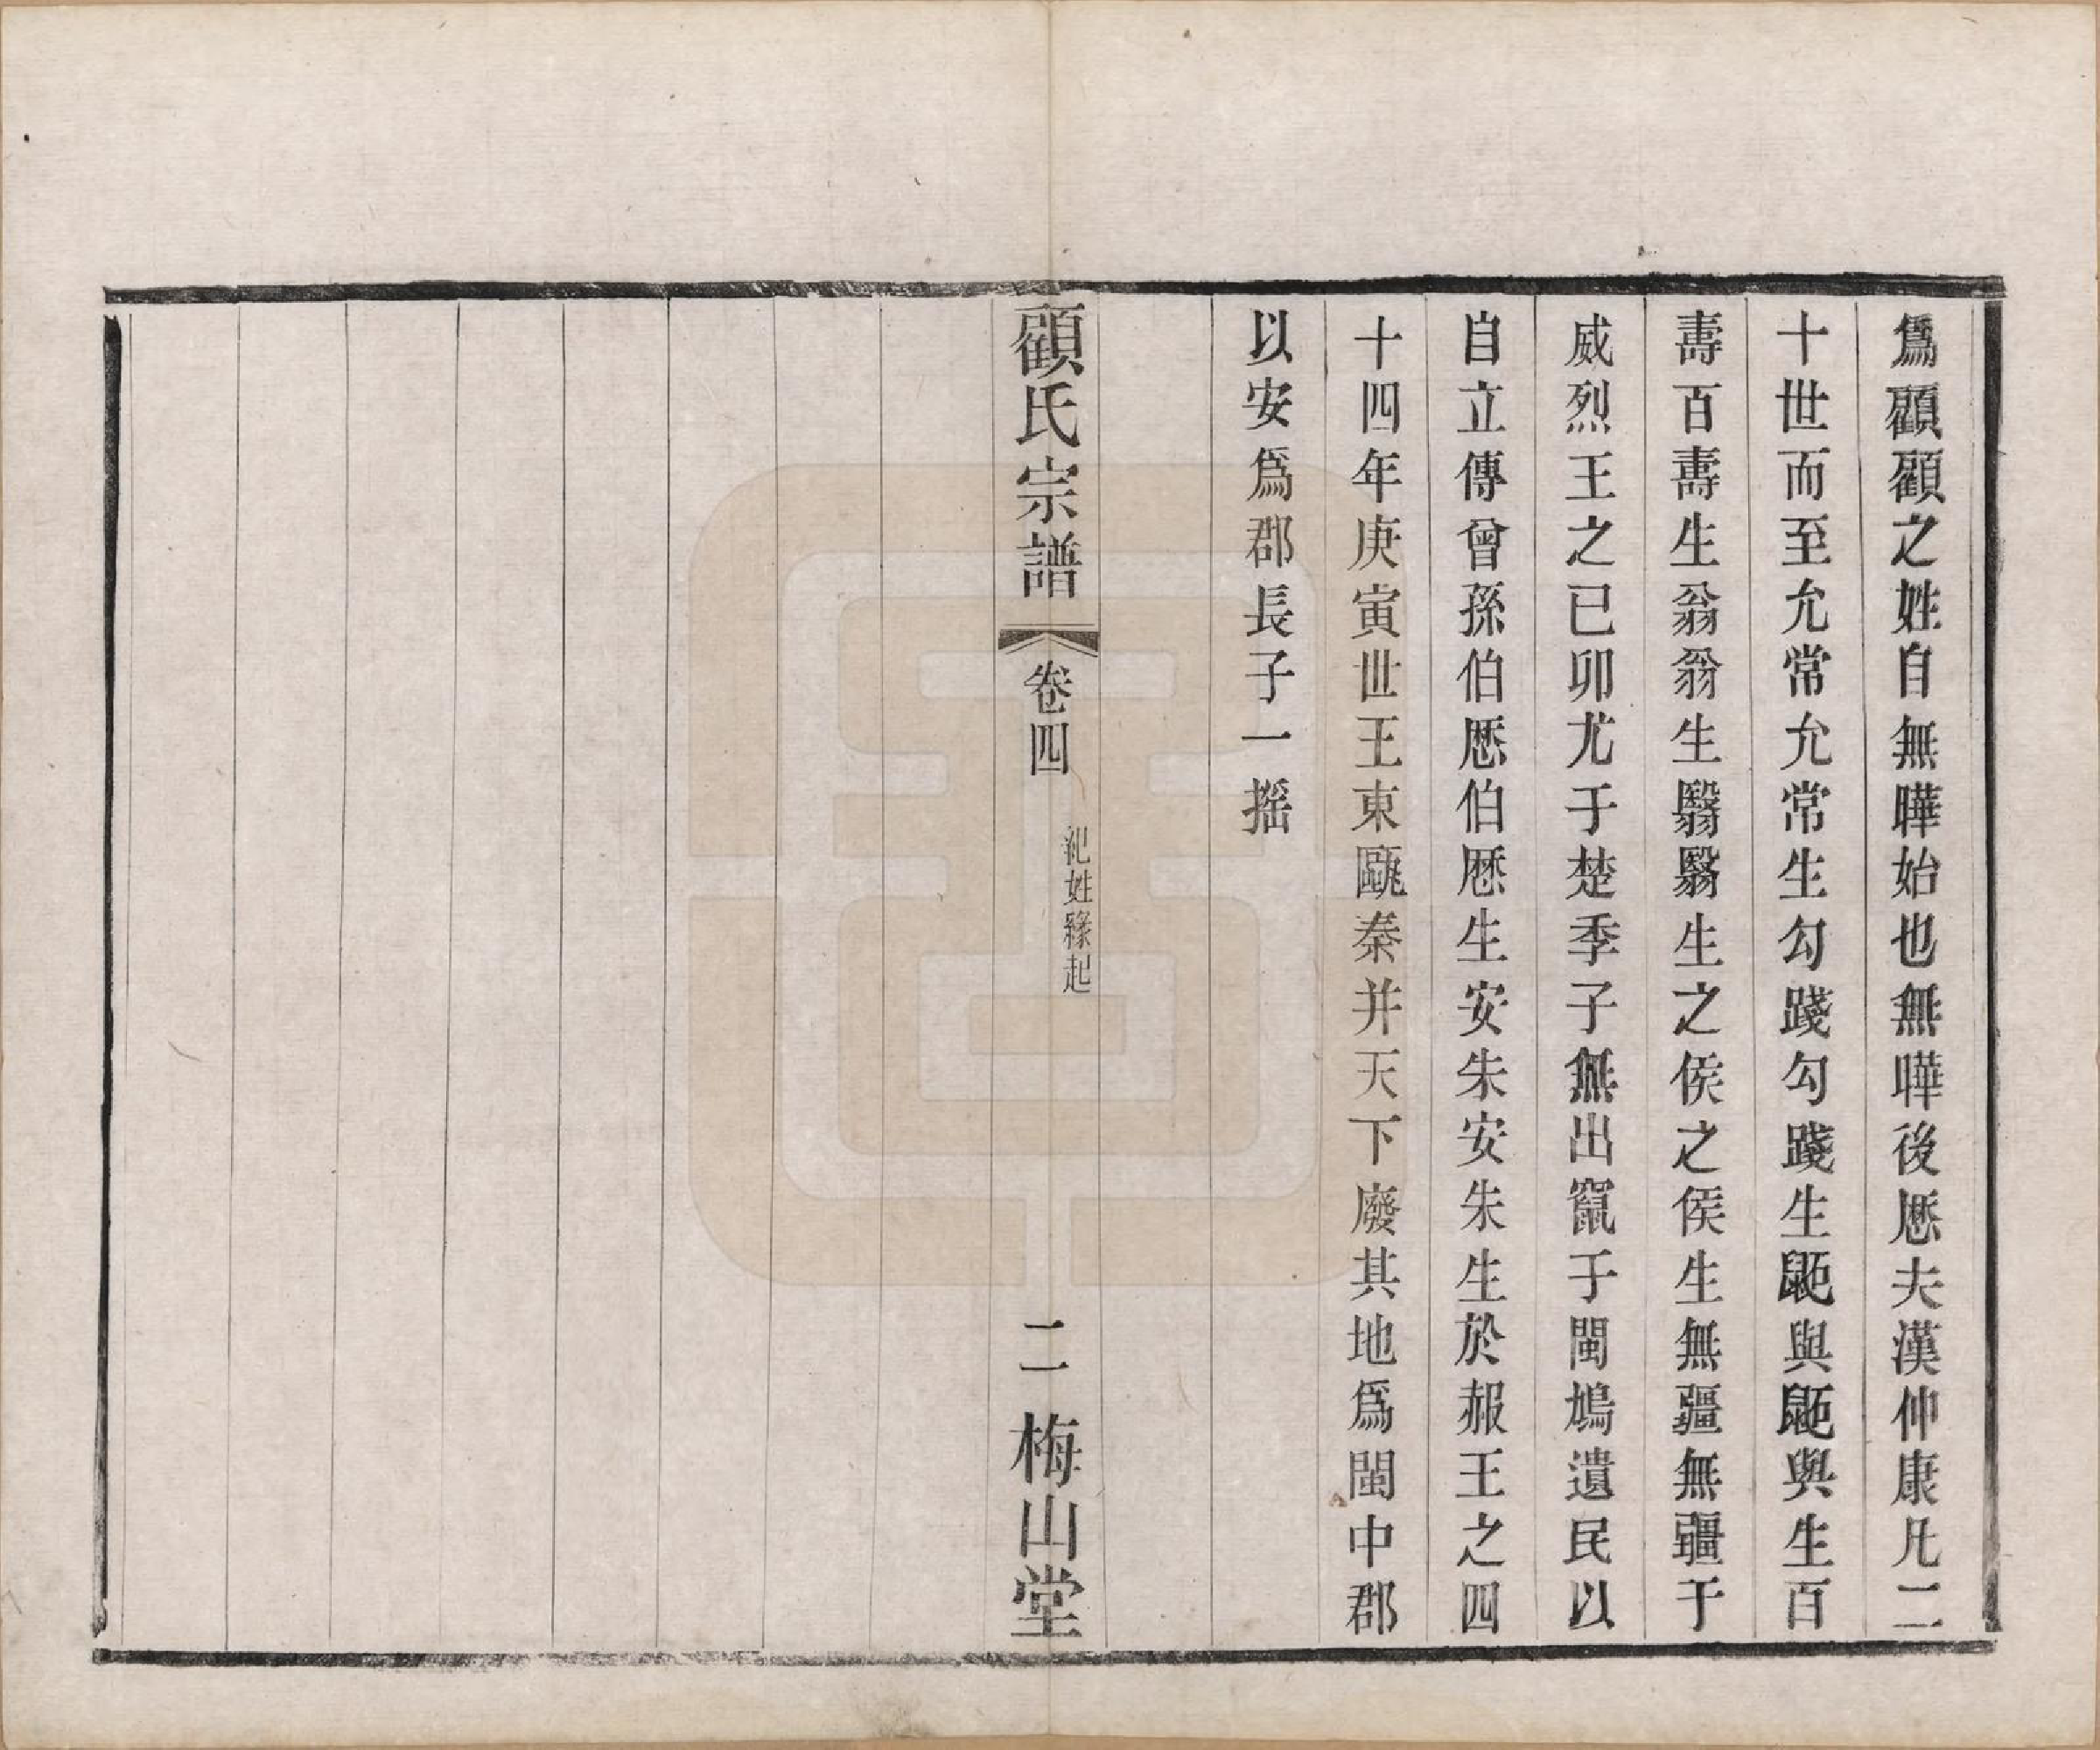 爲顧顧之姓自無曄始也無曄後厯夫漢仲康凡二
十世而至允常允常生勾踐勾踐生鼫與鼫與生百
壽百壽生翁翁生翳翳生之侯之侯生無疆無疆于
威烈王之已卯尤于楚季子無出竄于閩鳩遺民以
自立傳曾孫伯厯伯厯生安朱安朱生於赧王之四
十四年庚寅世王東甌秦并天下廢其地爲閩中郡
以安爲郡長子一摇
顧氏宗譜
卷四
祀姓緣起
二
梅山堂